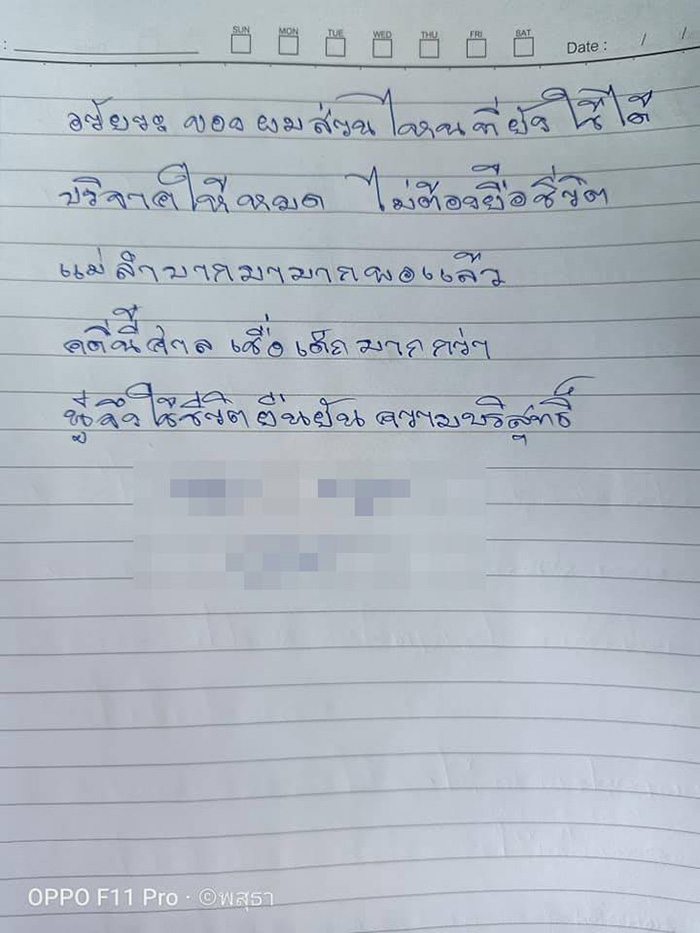 : SUN MON TUE WED THU FRI SAT Date : / /
อวัยวะ ของ ผม ส่วน ไหน ที่ ยัง ใช้ ได้
บริจาคให้หมด ไม่ต้องยื้อชีวิต
แม่ลำบากมามากพอแล้ว
คดีนี้ศาล เชื่อ เด็ก มากกว่า
นู๋จึงใช้ชีวิตยืนยัน ความบริสุทธิ์
OPPO F11 Pro · ©พสุธา